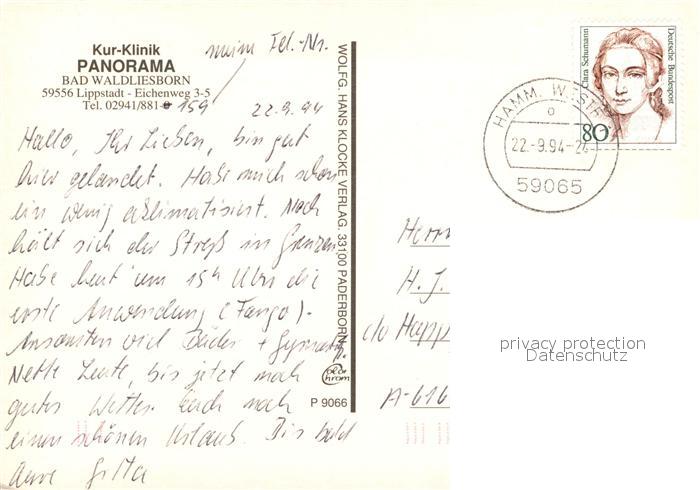 Kur-Klinik
PANORAMA
BAD WALDLIESBORN
59556 Lippstadt - Eichenweg 3-5
Tel. 02941/881-0 159
meine Tel.-Nr.
22.9.94
Hallo, Ihr Lieben, bin gut
hier gelandet. Habe mich schon
ein wenig aklimatisiert. Noch
hält sich der Streß in Grenzen.
Habe heut' um 15h Uhr die
erste Anwendung (Fango).
Ansonsten viel Bäder + Gymnastik.
Nette Leute, bis jetzt noch
gutes Wetter. Euch noch
einen schönen Urlaub. Bis bald
Gitta
WOLFG. HANS KLOCKE VERLAG, 33100 PADERBORN
P 9066
Clara Schumann
Deutsche Bundespost
80
HAMM, WESTF
22.-9.94-24
59065
Herrn
H. J.
c/o Happ
A-616
privacy protection
Datenschutz